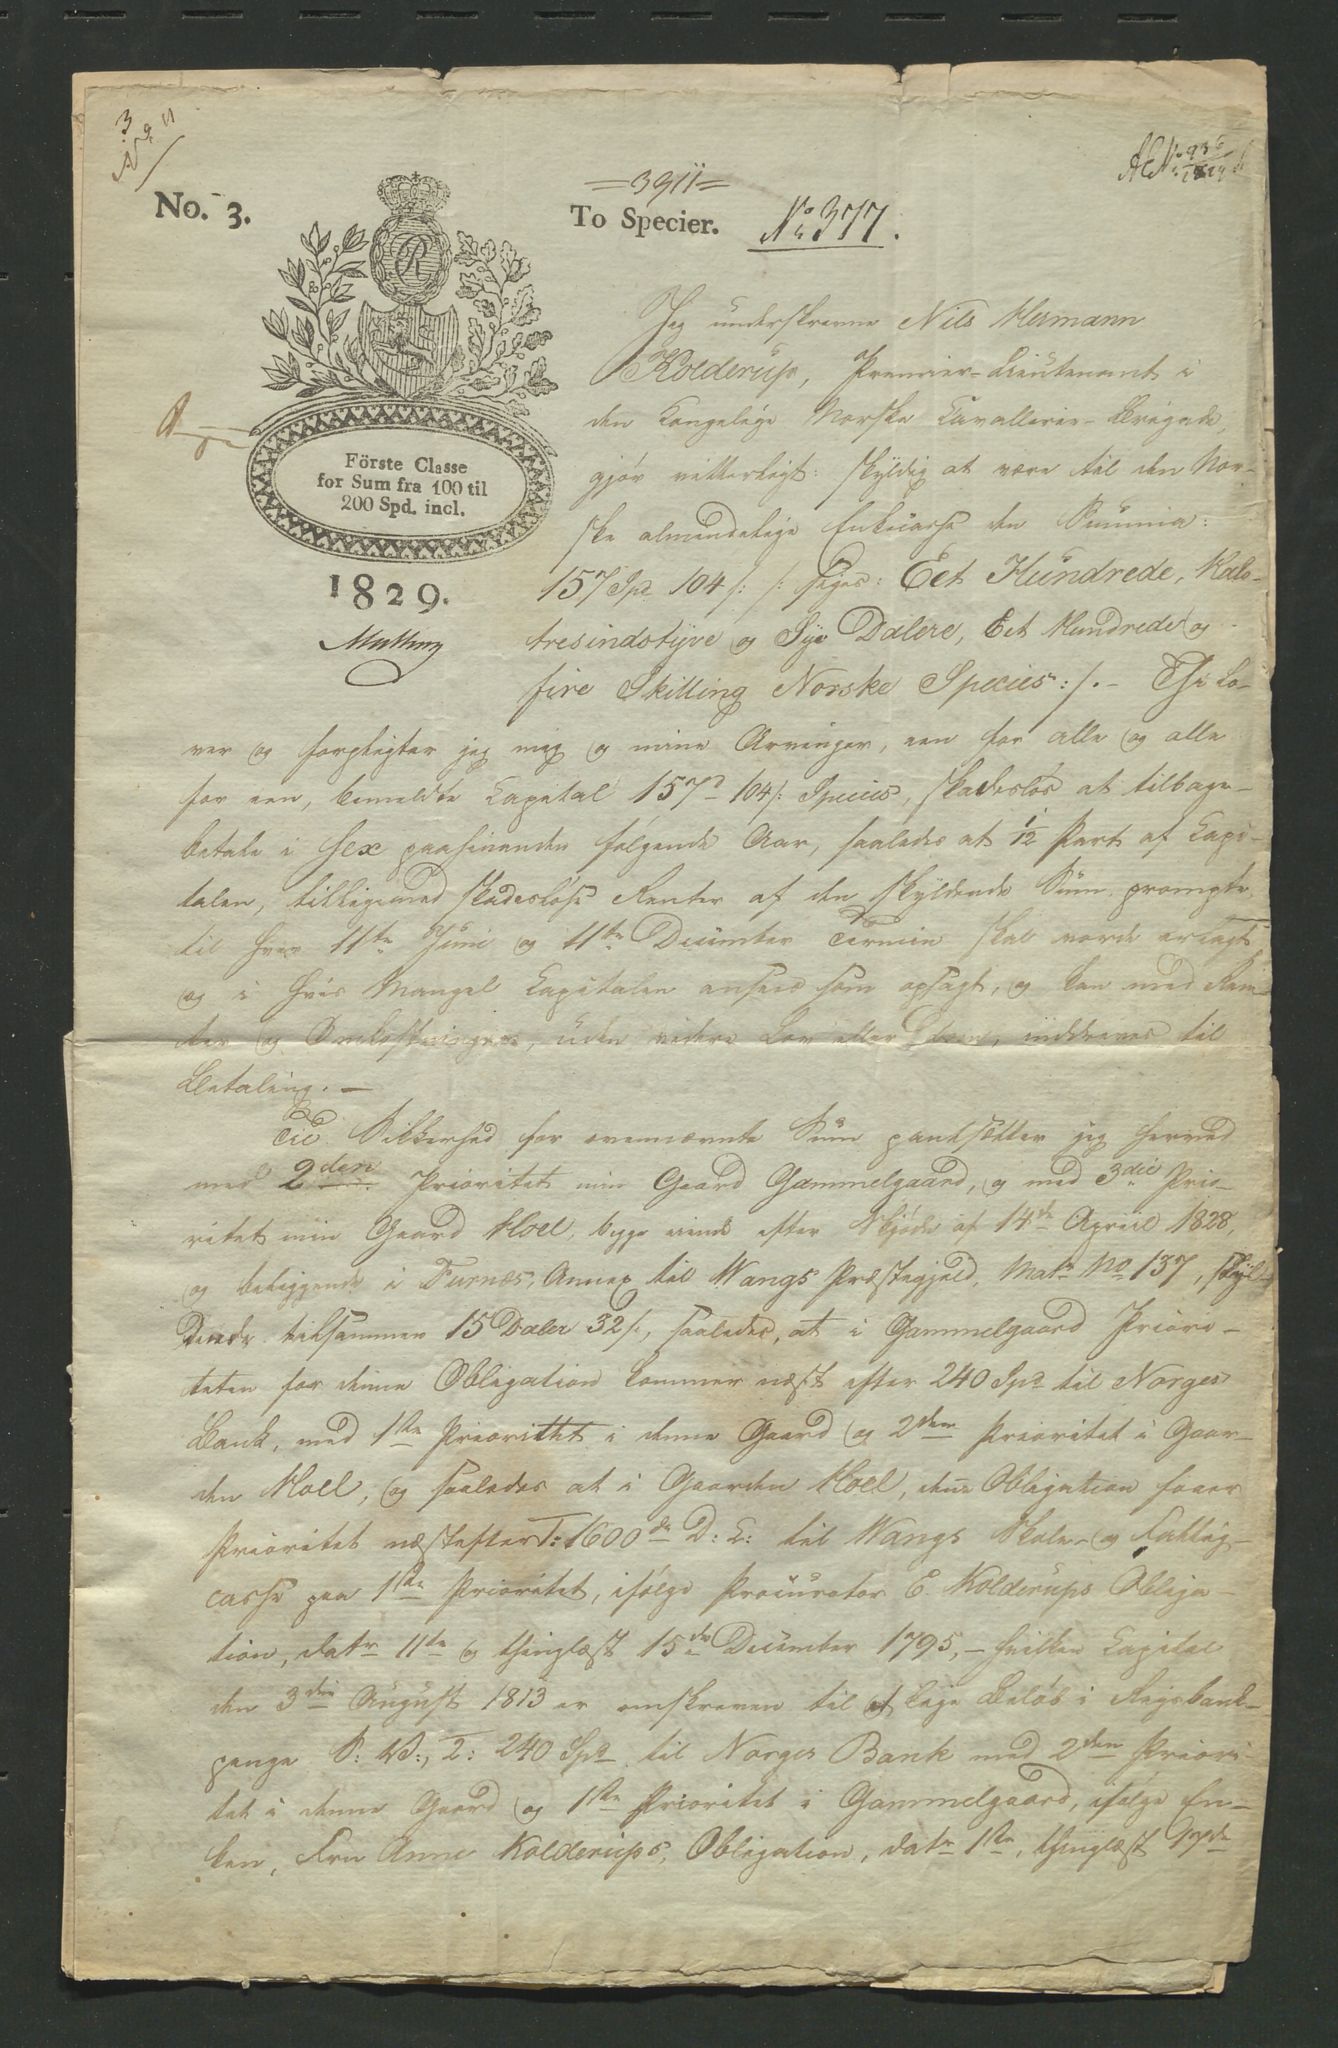 3
No. 3.
=3911=
To Specier.
No 377.
R
Förste Classe
for Sum fra 100 til
200 Spd. incl.
1829.
Jeg underskrevne Nils Hermann
Kolderup, Premier-Lieutenant i
den kongelige Norske Cavallerie-Brigade,
gjör vetterligt: skyldig at være til den Nor-
ske almindelige Enkecasse den Summa:
157 Spd 104 s: /: siger: Eet Hundrede, Halv-
tresindstyve og Syv Dalere, Eet Hundrede og
fire Skilling Norske Species :/. – Thi lo-
ver og forpligter jeg mig og mine Arvinger, een for alle og alle
for een, bemeldte Capital 157d 104 s: Species, skadeslös at tilbage-
betale i sex paahinanden fölgende Aar, saaledes at 1/12 Part af Capi-
talen, tilligemed skadeslöse Renter af den skyldende Sum prompte
til hver 11te Juni og 11te December Termin skal vorde erlagt
og i hvis Mangel Capitalen ansees som opsagt, og kan med Ren-
ter og Omkostninger, uden videre Lov eller Dom, inddrives til
Betaling. –
Til Sikkerhed for ovennævnte Sum pantsætter jeg herved
med 2den Prioritet min Gaard Gammelgaard, og med 3die Prio-
ritet min Gaard Hoel, begge eiende efter Skjöde af 14de April 1828,
og beliggende i Furnæs, Annex til Wangs Præstegjeld, Matr No 137, skyl-
dende tilsammen 15 Daler 32 s, saaledes, at i Gammelgaard Priori-
teten for denne Obligation kommer næst efter 240 Spd til Norges
Bank, med 1ste Prioritet i denne Gaard og 2den Prioritet i Gaar-
den Hoel, og saaledes at i Gaarden Hoel, denne Obligation faaer
Prioritet næstefter 1: 1600 d D: C: til Wangs Skole- og Fattig-
casse paa 1ste Prioritet, ifölge Procurator E. Kolderups Obliga-
tion, datr 11te og thinglæst 15de December 1795, – hvilken Capital
den 3die August 1813 er omskreven til et lige Belöb i Rigsbank-
penge S: V:, 2: 240 Spd til Norges Bank med 2den Priori-
tet i denne Gaard og 1ste Prioritet i Gammelgaard, ifölge En-
ken, Fru Anne Kolderups, Obligation, datr 1ste, thinglæst 17de